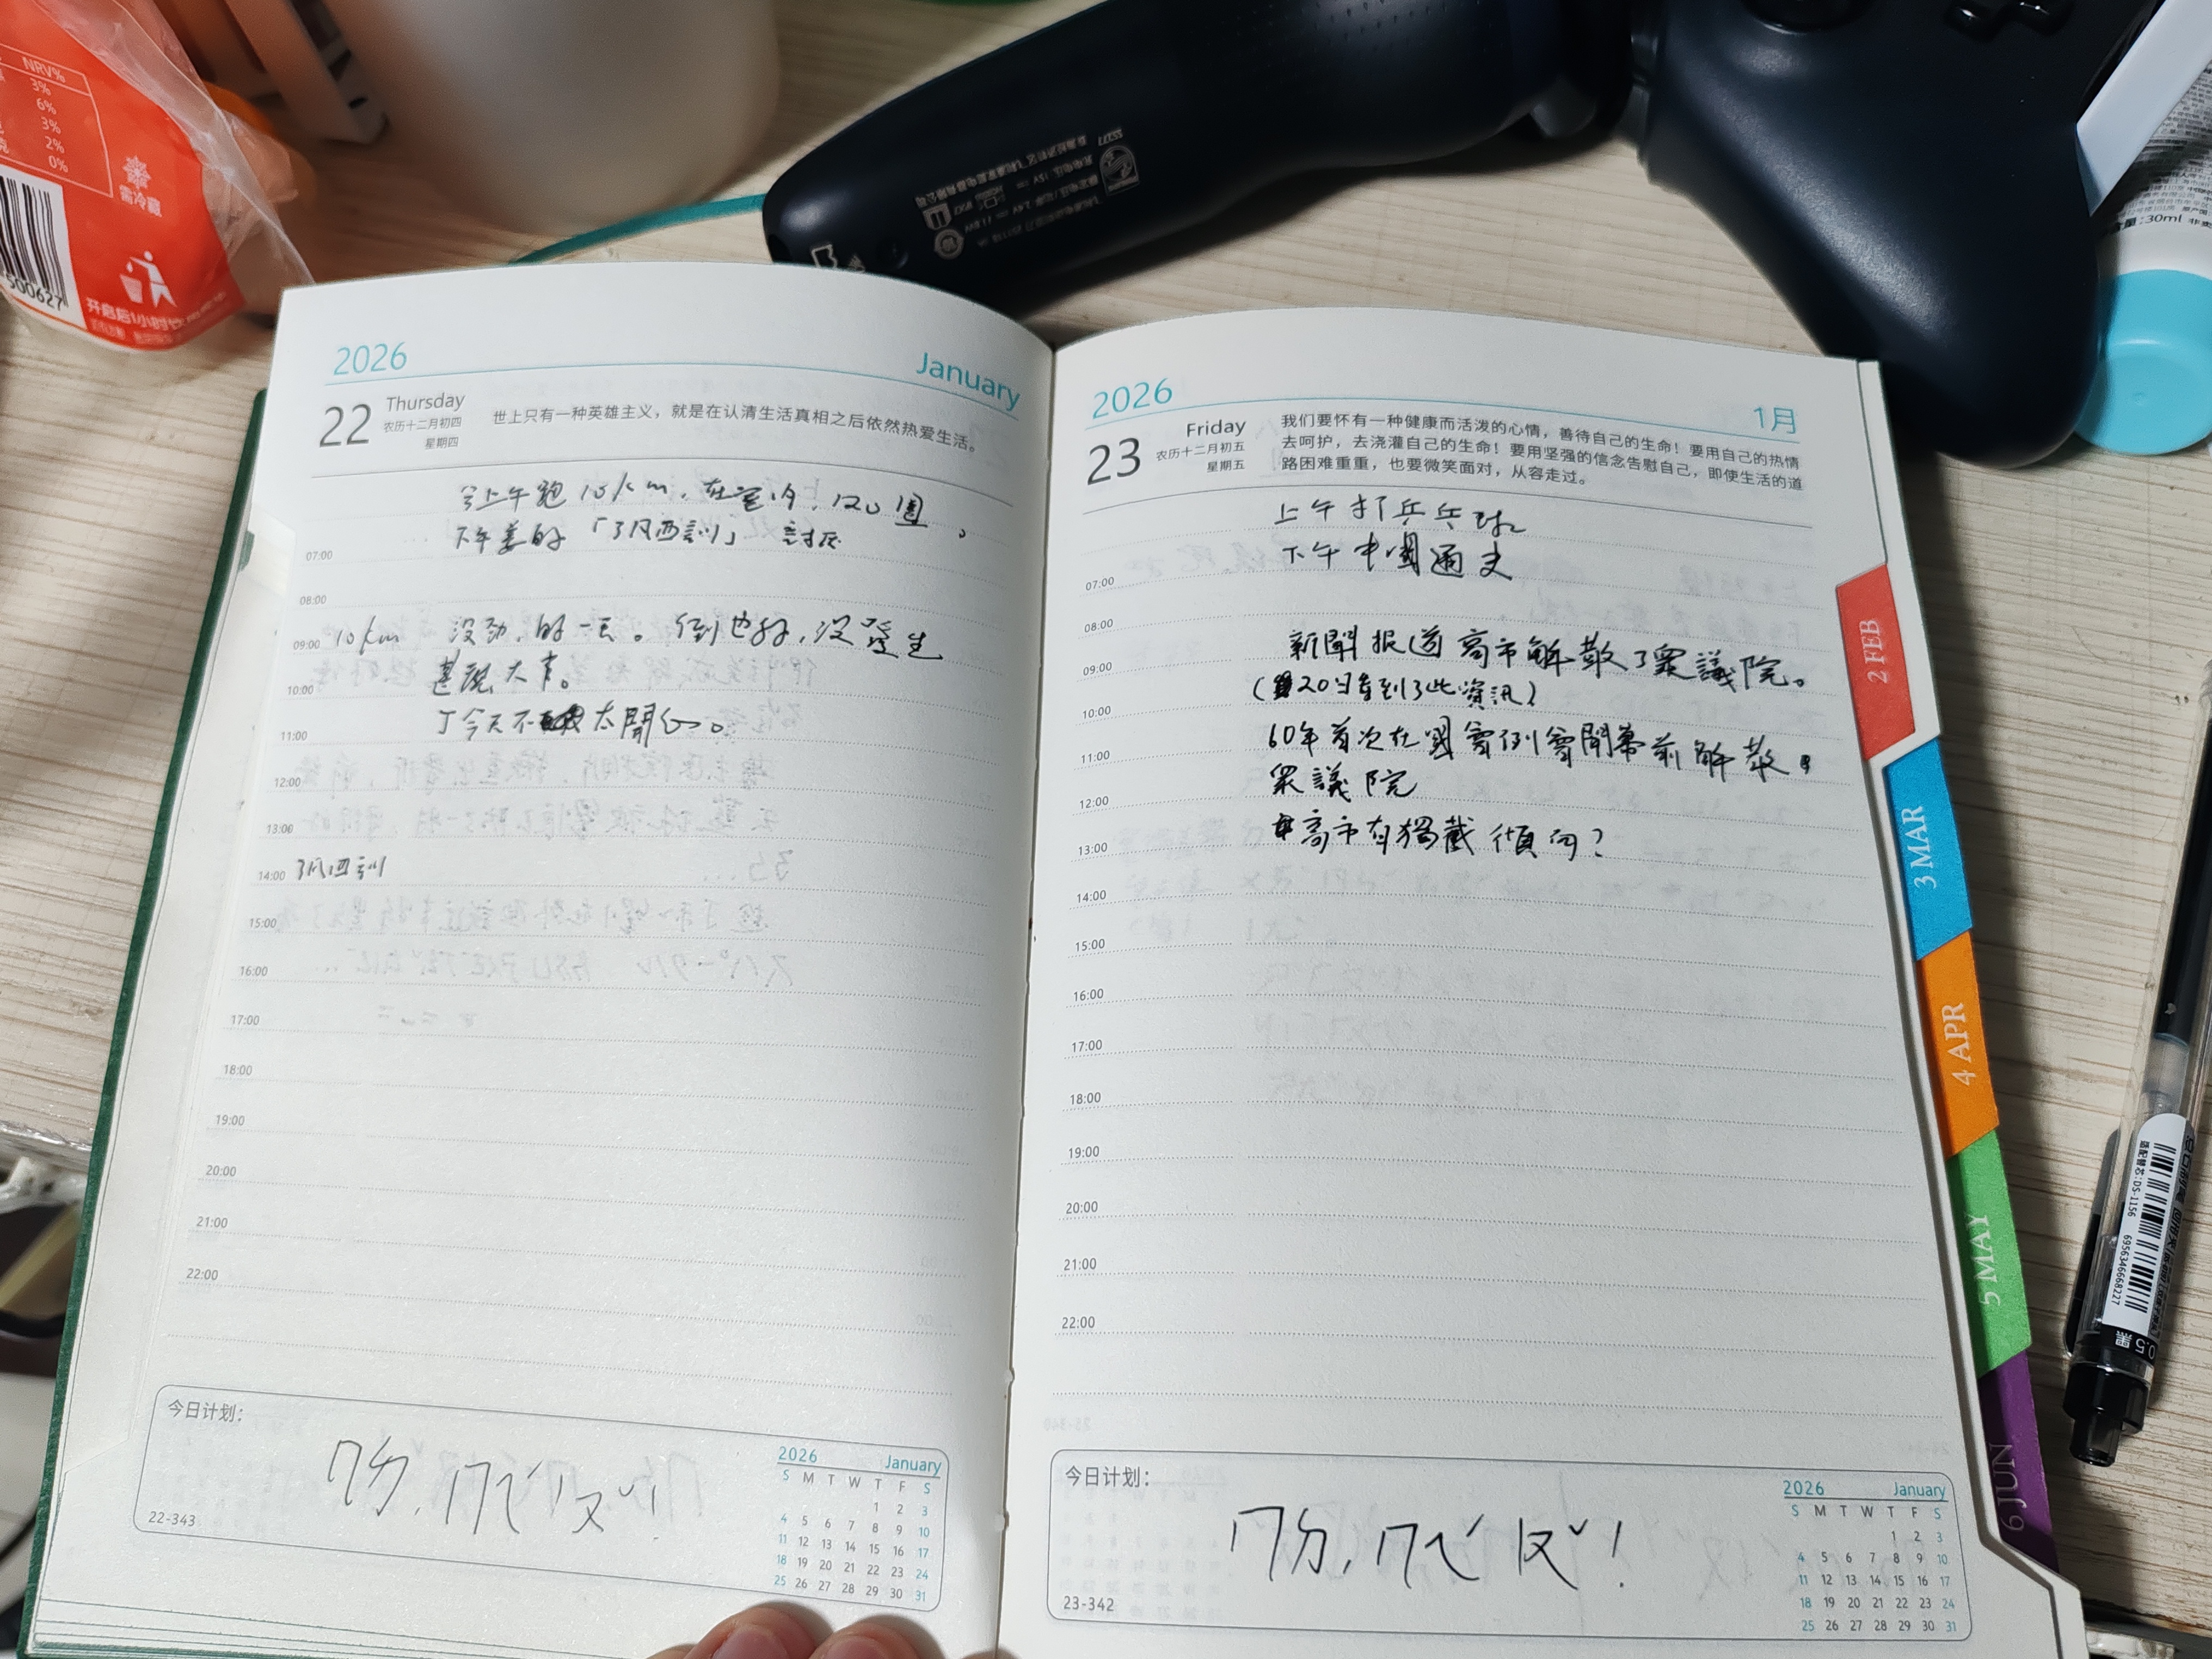 NRV%
3%
6%
3%
2%
0%
需冷藏
500627
开启后1小时饮
:30ml
2026 January
22 Thursday
农历十二月初四
星期四
世上只有一种英雄主义，就是在认清生活真相之后依然热爱生活。
上午跑10km，在室内，120圈，
下午姜的「了凡四訓」討厌
07:00
08:00
09:00 10km 没劲的一天。倒也好，没發生
甚麽大事。
10:00
11:00 丁今天不太開心。
12:00
13:00
14:00 了凡四訓
15:00
16:00
17:00
18:00
19:00
20:00
21:00
22:00
今日计划：
ㄇㄌ，ㄇㄟˊㄡˇ！
22-343
2026 January
S M T W T F S
1 2 3
4 5 6 7 8 9 10
11 12 13 14 15 16 17
18 19 20 21 22 23 24
25 26 27 28 29 30 31
2026 1月
23 Friday
农历十二月初五
星期五
我们要怀有一种健康而活泼的心情，善待自己的生命！要用自己的热情
去呵护，去浇灌自己的生命！要用坚强的信念告慰自己，即使生活的道
路困难重重，也要微笑面对，从容走过。
上午打乒乓球
下午中國通史
07:00
08:00
新聞报道高市解散了眾議院。
09:00
(20日看到了此資訊)
10:00
60年首次在國會例會開幕前解散
11:00
眾議院
12:00
高市有獨裁傾向？
13:00
14:00
15:00
16:00
17:00
18:00
19:00
20:00
21:00
22:00
今日计划：
ㄇㄌ，ㄇㄟˊㄡˇ！
23-342
2026 January
S M T W T F S
1 2 3
4 5 6 7 8 9 10
11 12 13 14 15 16 17
18 19 20 21 22 23 24
25 26 27 28 29 30 31
2 FEB
3 MAR
4 APR
5 MAY
6 JUN
适配替芯:DS-1156
6956346668227
0.5 黑